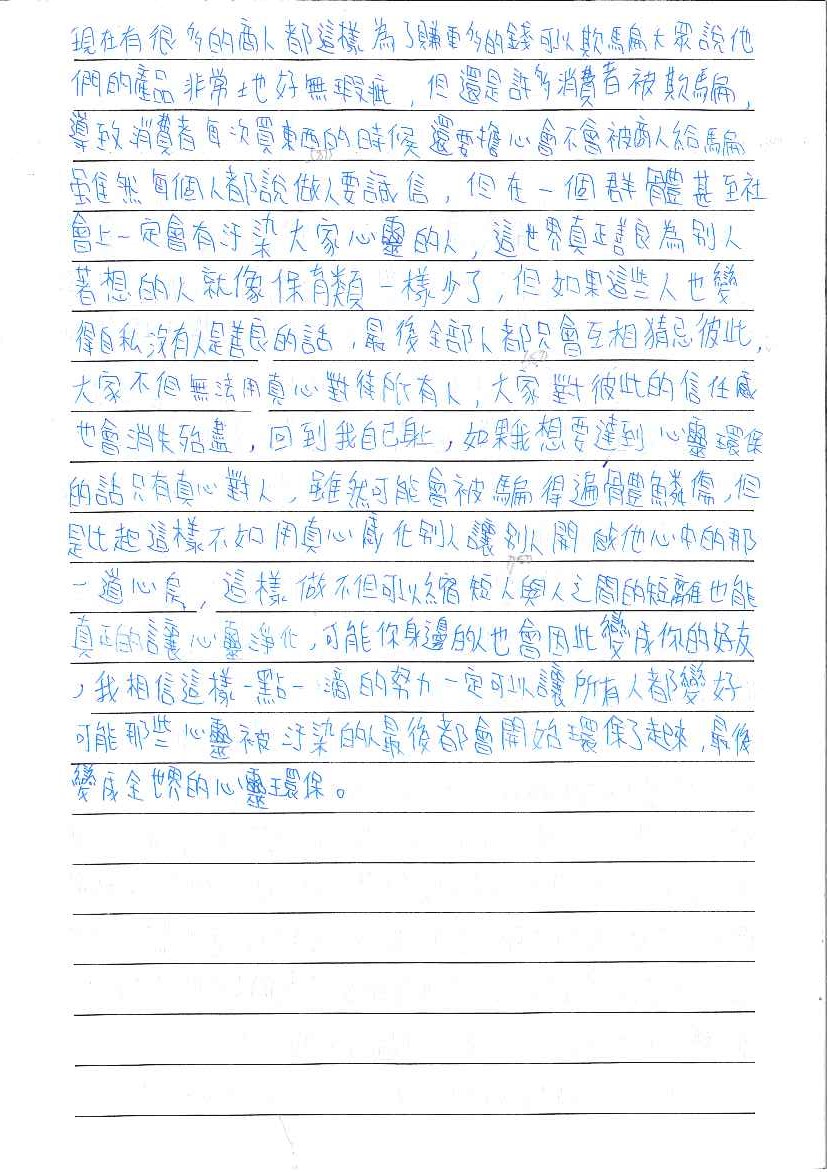 現在有很多的商人都這樣為了賺更多的錢可以欺騙大眾說他
們的產品非常土地好無瑕疵，但還是許多消費者被欺騙，
導致消費者每次買東西的時候還要擔心會不會被商人給騙
雖然每個人都說做人要誠信，但在一個群體甚至社
會上一定會有汙染大家心靈的人，這世界真正善良為別人
著想的人就像保育類一樣少了，但如果這些人也變
得自私沒有人是善良的話，最後全部人都只會互相猜忌彼此，
大家不但無法用真心對待所有人，大家對彼此的信任感
也會消失殆盡，回到我自己身上，如果我想要達到心靈環保
的話只有真心對人，雖然可能會被騙得遍體鱗傷，但
是比起這樣不如用真心感化別人讓別人開啟他心中的那
一道心房，這樣做不但可以縮短人與人之間的短離也能
真正的讓心靈淨化，可能你身邊的人也會因此變成你的好友
，我相信這樣一點一滴的努力一定可以讓所有人都變好
可能那些心靈被汙染的人最後都會開始環保了起來，最後
變成全世界的心靈環保。